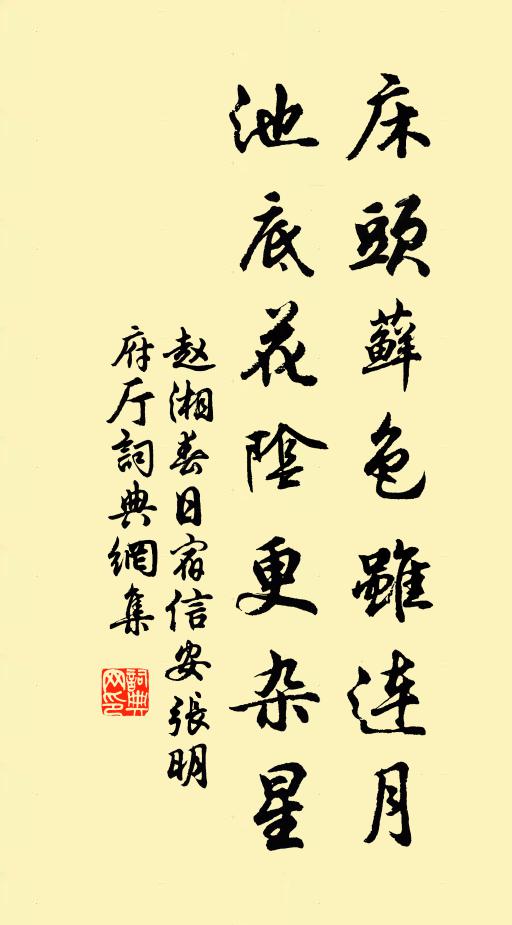 床頭蘚色雖连月
池底花陰更杂星
赵湘春日宿信安張明
府厅詞典網集
詞典
网印